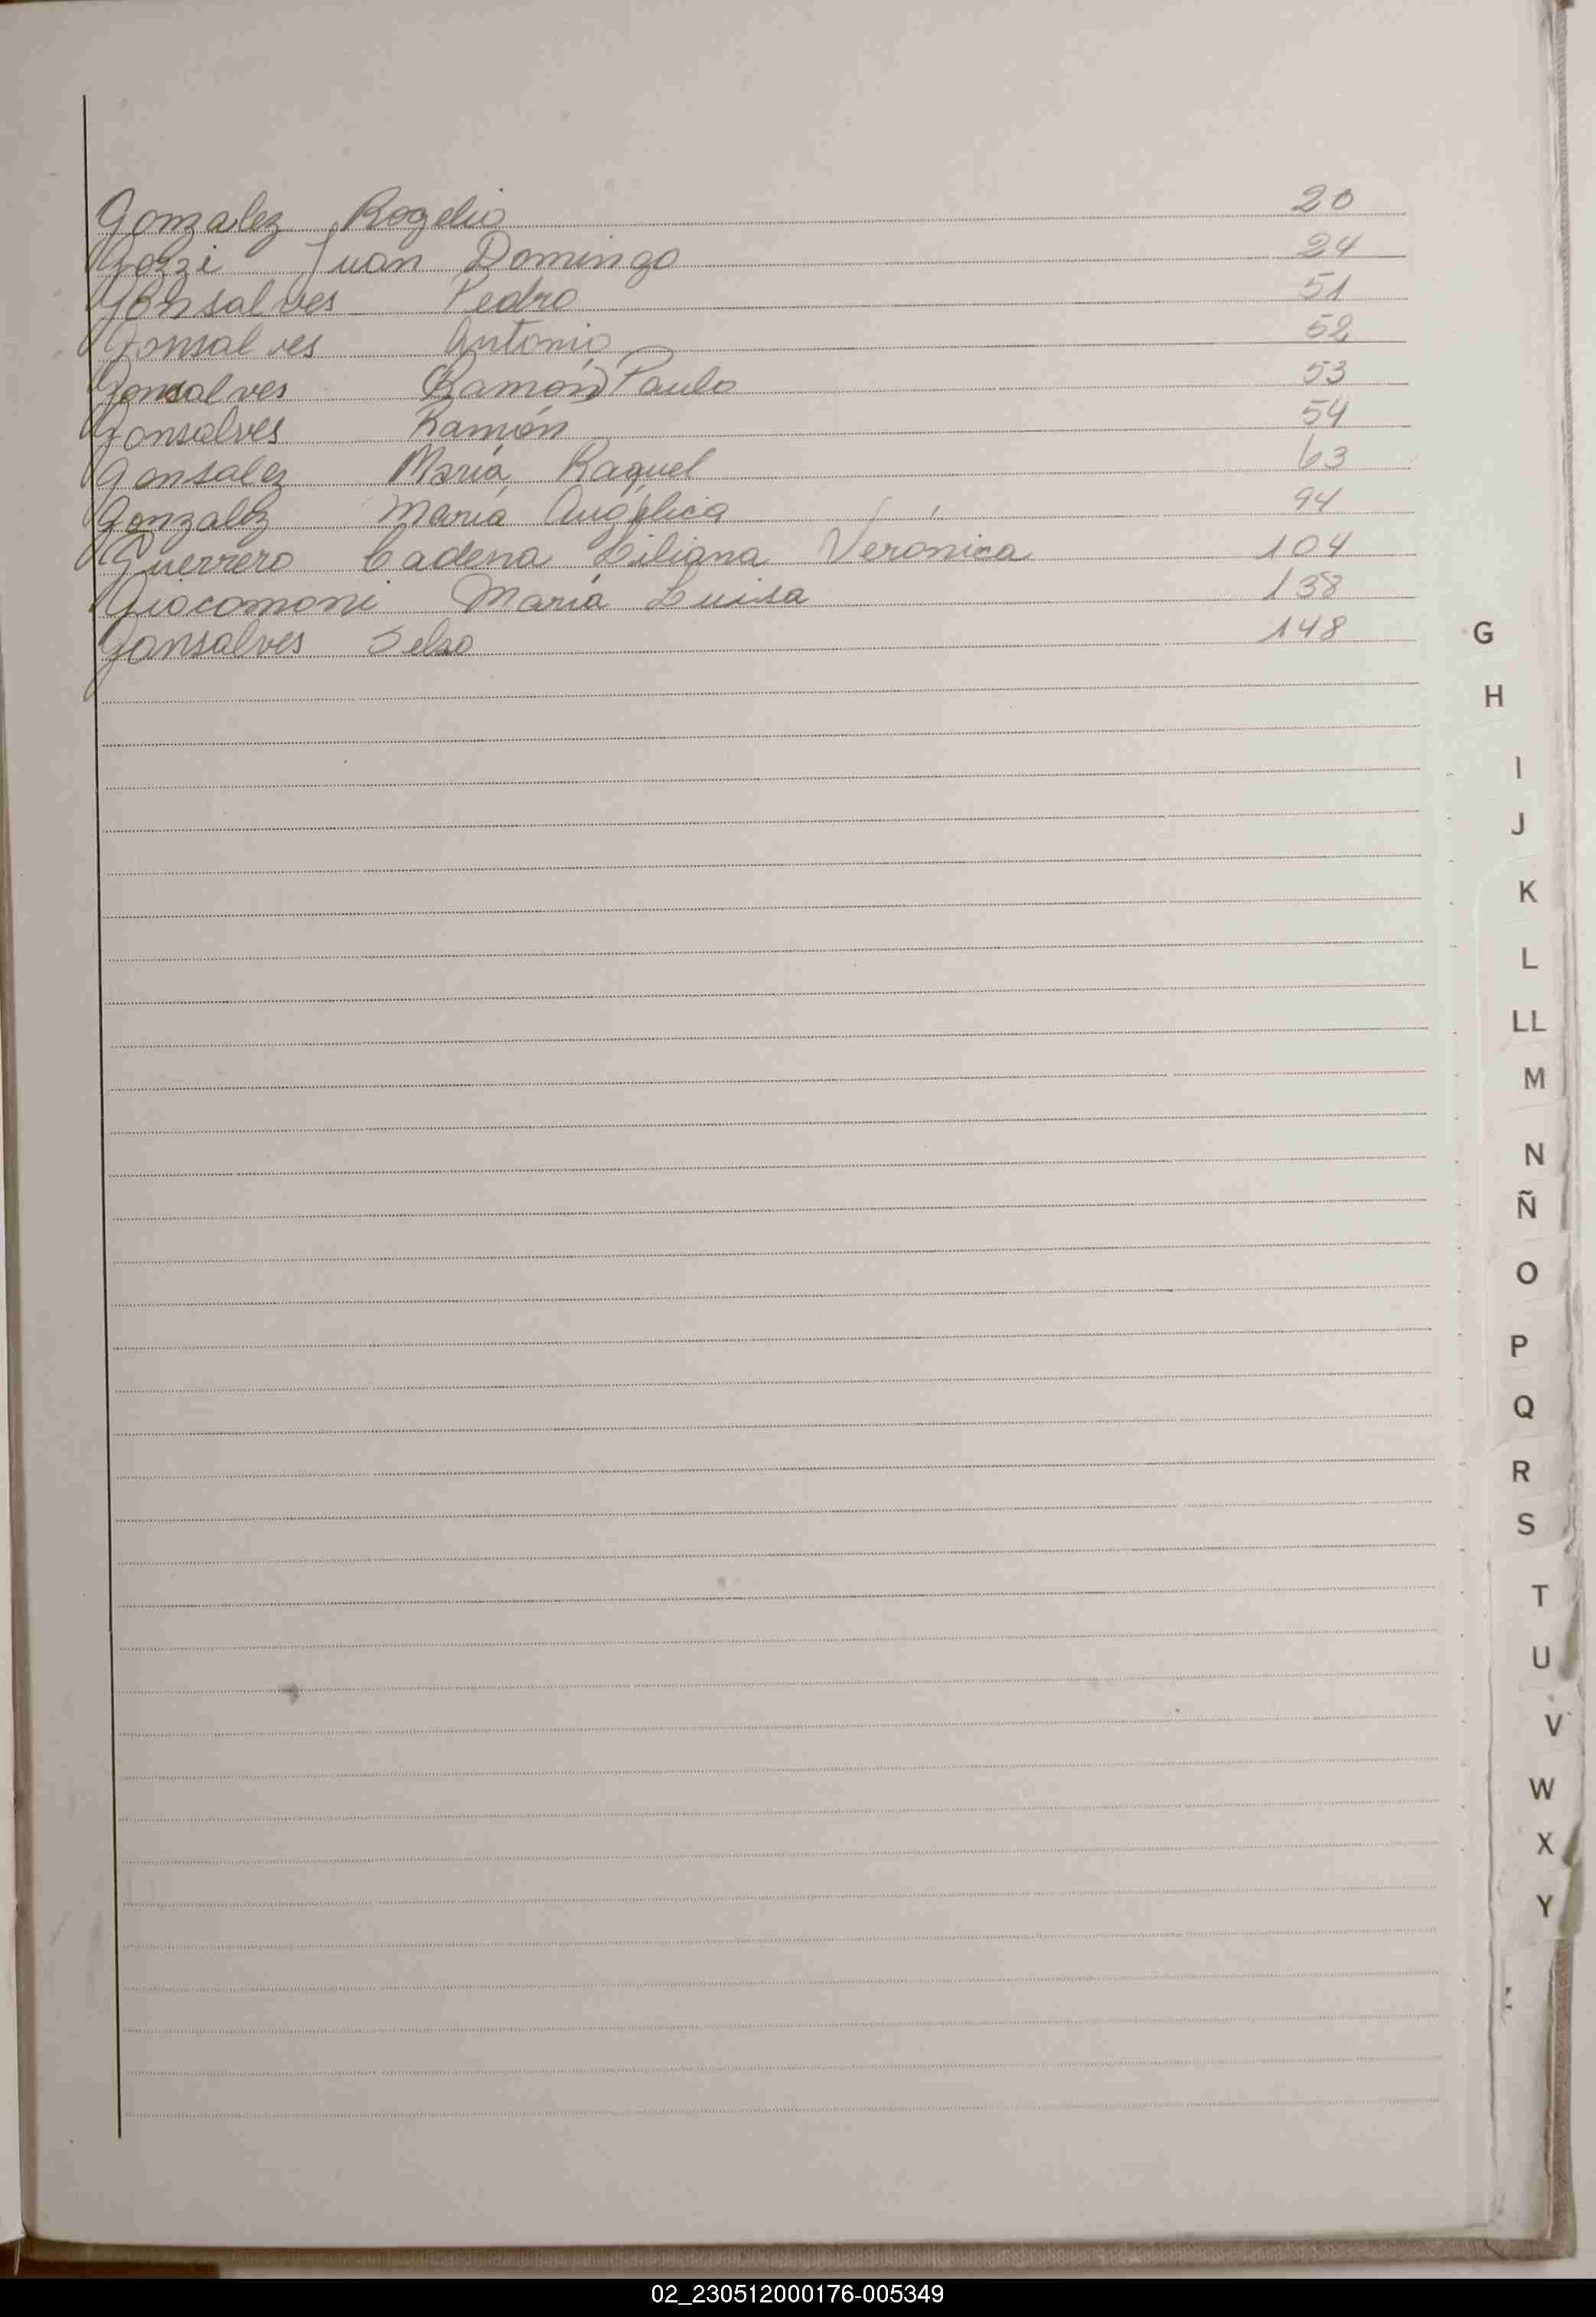 Gonzalez Rogelio 20
Gozzi Juan Domingo 24
Gonsalves Pedro 51
Gonsalves Antonio 52
Gonsalves (Ramón) Paulo 53
Gonsalves Ramón 54
Gonsalez María Raquel 63
Gonzalez María Angélica 94
Guerrero Cadena Liliana Verónica 104
Giocomoni María Luisa 138
Gonsalves Selso 148
G
H
I
J
K
L
LL
M
N
Ñ
O
P
Q
R
S
T
U
V
W
X
Y
02_230512000176-005349